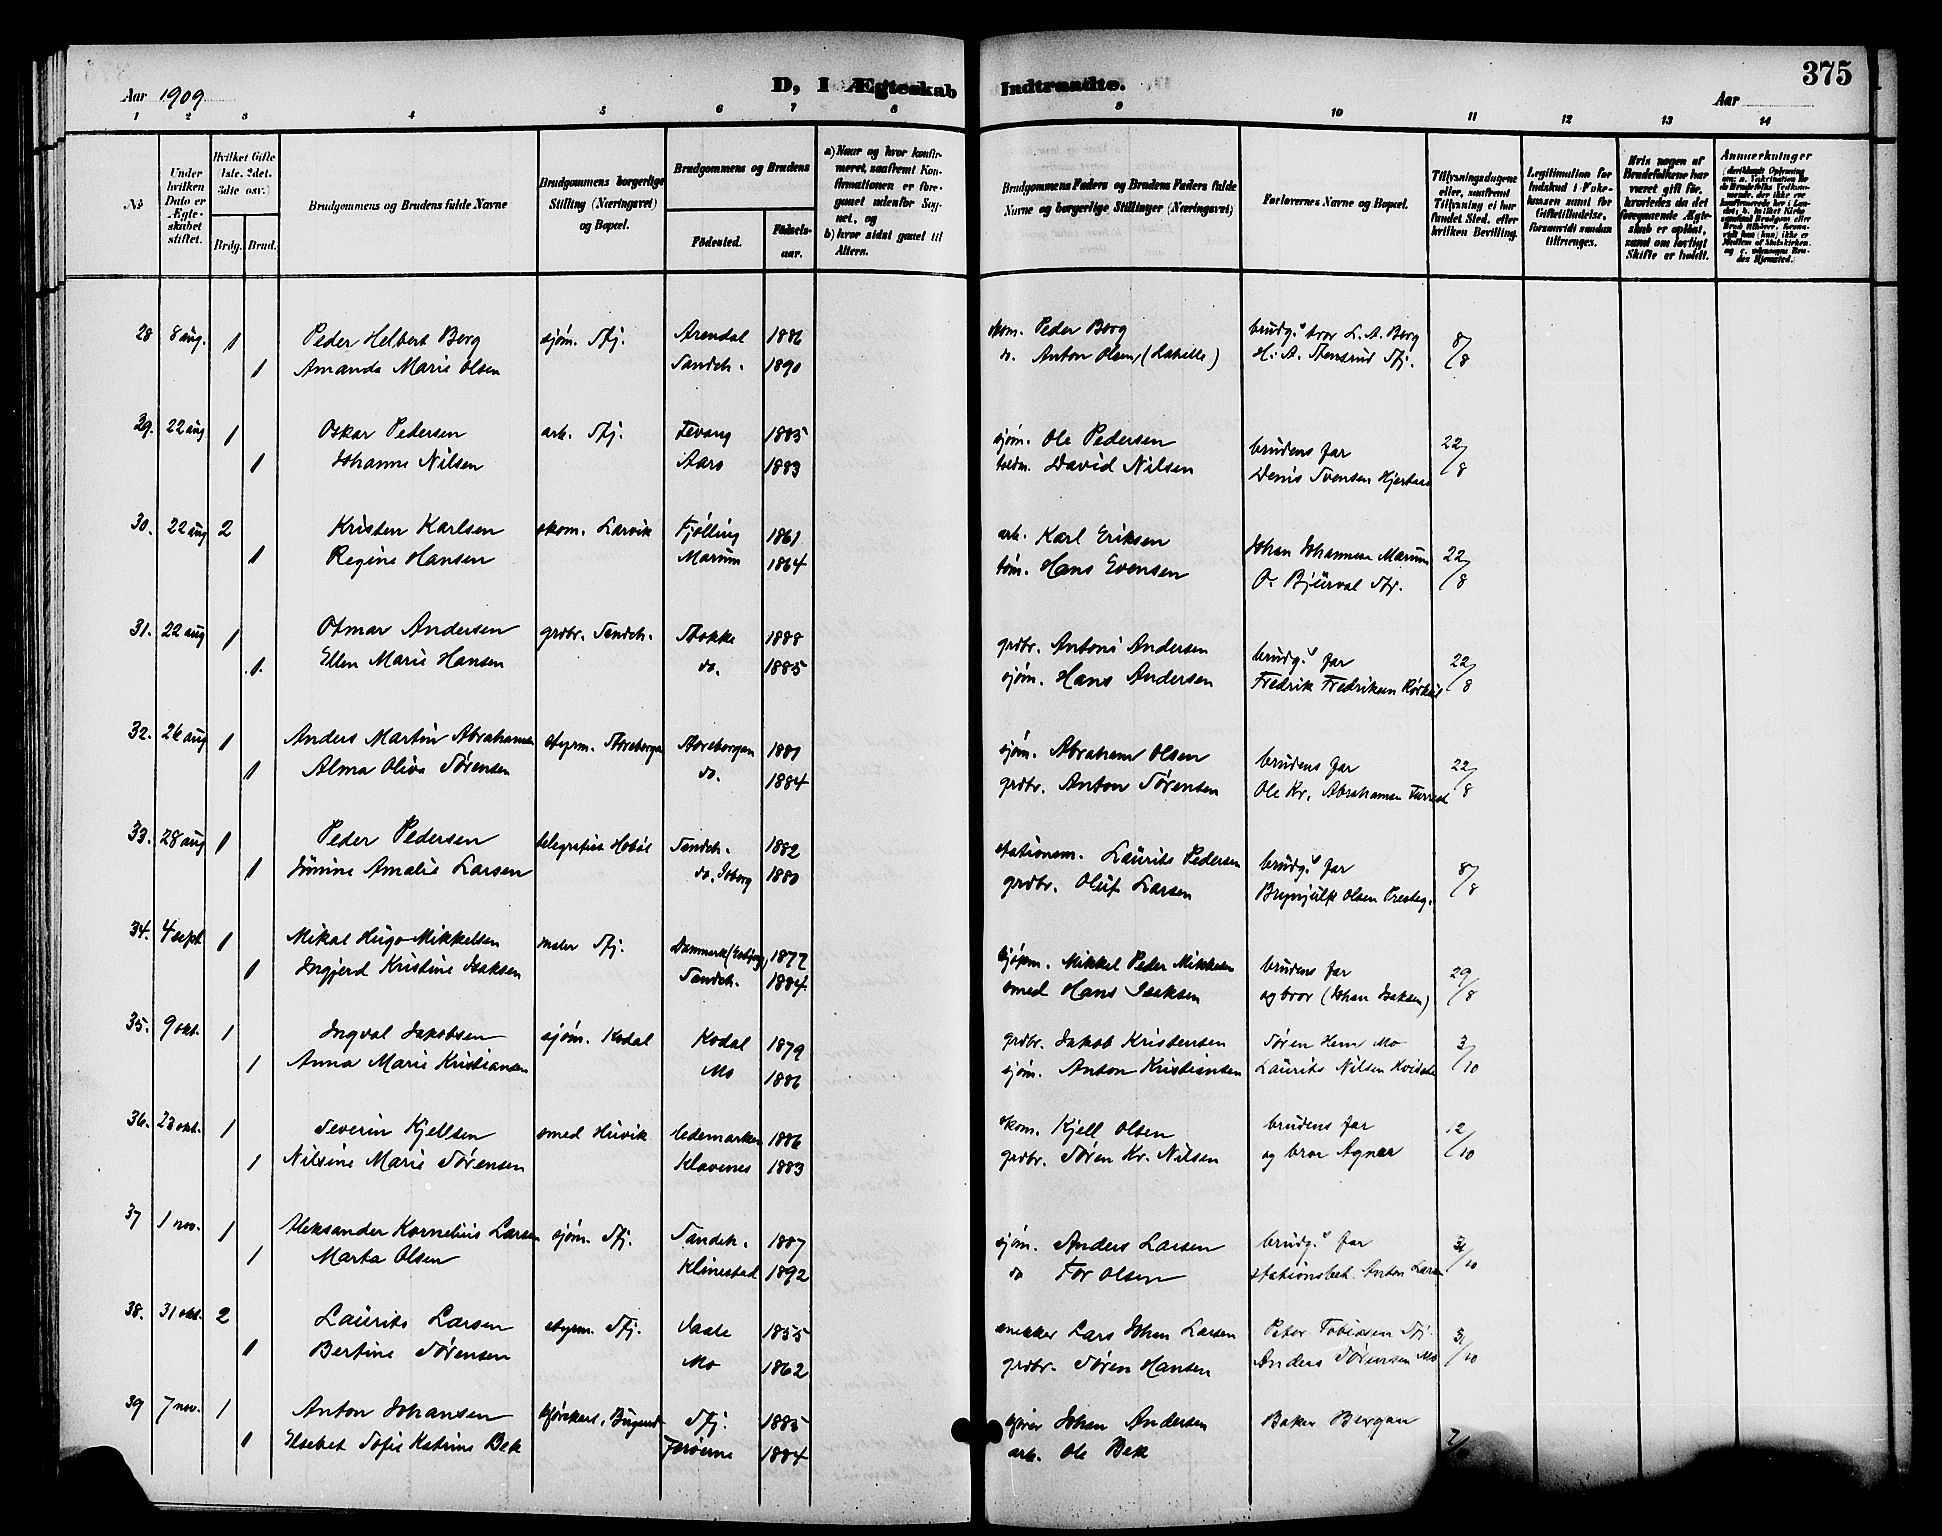 375
Aar 1909
D, I Ægteskab Indtraadte.
Aar
1 2 3 4 5 6 7 8 9 10 11 12 13 14
№
Under hvilken Dato er Ægteskabet stiftet.
Hvilket Gifte 1ste. 2det. 3die osv.)
Brdg. Brud.
Brudgommens og Brudens fulde Navne
Brudgommens borgerlige Stilling (Næringsvei) og Bopæl.
Brudgommens og Brudens
Fødested. Fødselsaar.
a) Naar og hvor konfirmeret, saafremt Konfirmationen er foregaaet udenfor Sognet, og
b) hvor sidst gaaet til Alters.
Brudgommens Faders og Brudens Faders fulde Navne og borgerlige Stillinger (Næringsvei)
Forlovernes Navne og Bopæl.
Tillysningsdagene eller, saafremt Tillysning ei har fundet Sted, efter hvilken Bevilling.
Legitimation for Indskud i Enkekassen samt for Giftetilladelse, forsaavidt saadan tiltrænges.
Hvis nogen af Brudefolkene har været gift før, hvorledes da det foregaaende Ægteskab er opløst, samt om lovligt Skifte er holdt.
Anmærkninger
28 8 aug. 1 Peder Helbert Berg sjøm. Sfj. Arendal 1886 skom. Peder Berg brudg.s bror L. A. Berg 8/8
1 Amanda Marie Olsen Sandeh. 1890 do. Anton Olsen H. A. Stensrud Sfj.
29. 22 aug 1 Oskar Pedersen arb. Sfj. Tevang 1885 sjøm. Ole Pedersen brudens far 22/8
1 Johanne Nilsen Aaro 1883 toldm. David Nilsen Denis Svensen
30. 22 aug 2 Kristen Karlsen skom. Larvik Tjølling 1861 arb. Karl Eriksen Johan Johannesen Marum 22/8
1 Regine Hansen Marum 1864 tøm. Hans Evensen O. Bjurval Sfj.
31. 22 aug 1 Otmar Andersen grdbr. Sandeh. Stokke 1888 grdbr. Antoni Andersen brudg.s far 22/8
1 Ellen Marie Hansen do. 1885 sjøm. Hans Andersen Fredrik Fredriksen
32. 26 aug 1 Anders Martin Abrahamsen styrm. Storebergan Storebergan 1881 sjøm. Abraham Olsen brudens far 22/8
1 Alma Oliva Sørensen do. 1884 grdbr. Anton Sørensen Ole Kr. Abrahamsen
33. 28 aug 1 Peder Pedersen telegrafist Hobøl Sandeh. 1882 stationsm. Laurits Pedersen brudg.s far 8/8
1 Amalie Larsen do. 1880 grdbr. Oluf Larsen Brynjulf Olsen Presteg.
34. 4 sept. 1 Mikal Hugo Mikkelsen maler Sfj. Danmark (Esbjerg) 1877 kjøpm. Mikkel Peder Mikkelsen brudens far 29/8
1 Ingjerd Kristine Isaksen Sandeh. 1884 smed Hans Isaksen og bror (Johan Isaksen)
35. 9 okt. 1 Ingval Jakobsen sjøm. Kodal Kodal 1879 grdbr. Jakob Kristensen Søren Hem Mo 3/10
1 Anna Marie Kristiansen Mo 1886 sjøm. Anton Kristiansen Laurits Nilsen
36. 23 okt. 1 Severin Kjellsen smed Huvik Hedemarken 1886 skom. Kjell Olsen brudens far 12/10
1 Nilsine Marie Sørensen Klavenes 1883 grdbr. Søren Kr. Nilsen og bror Agnar
37 1 nov. 1 Aleksander Kornelius Larsen sjøm. Sfj. Sandeh. 1887 sjøm. Anders Larsen brudg.s far 31/10
1 Marta Olsen Klinestad 1892 do Tor Olsen stationsbet. Anton Larsen
38. 31 okt. 2 Laurits Larsen styrm. Sfj. Vaale 1855 snekker Lars Johan Larsen Peter Tobiassen Sfj. 31/10
1 Bertine Sørensen Mo 1862 grdbr. Søren Hansen Anders Sørensen Mo
39 7 nov. 1 Anton Johansen Bugaard Sfj. 1885 Johan Andersen Baker Bergan 7/
1 Elsebet Sofie Katrine Bek Færøerne 1884 arb. Ole Bek